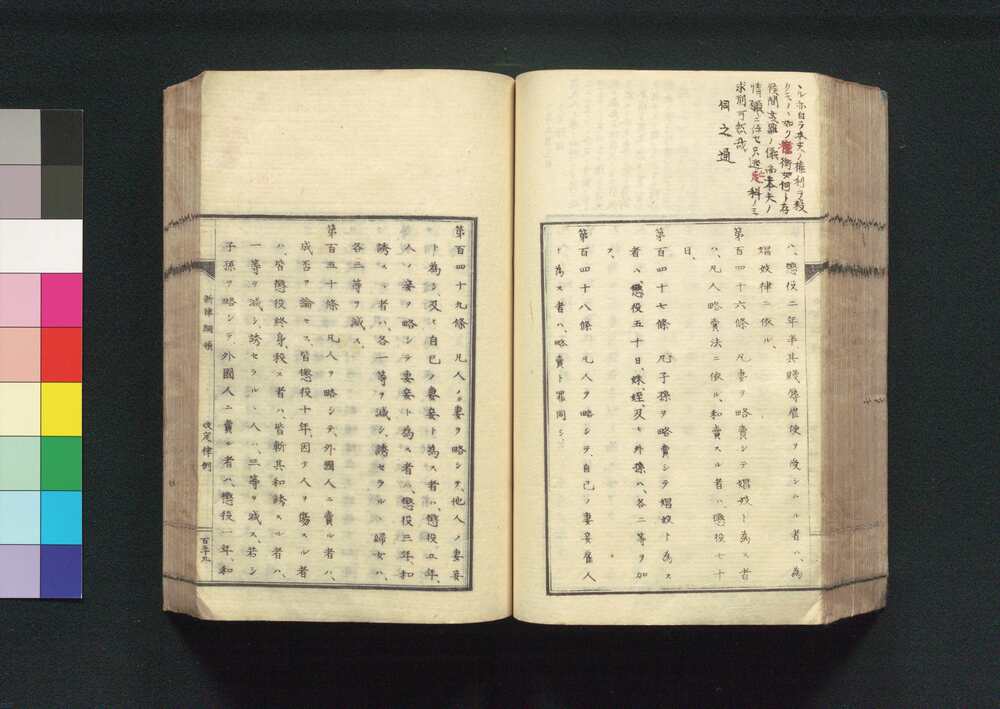 求刑可然哉
伺之通
ハ、懲役二年半其賤辱雇使ヲ受シムル者ハ、為
娼妓律ニ依ル、
第百四十六條　凡妻ヲ略賣シテ娼妓ト為ス者
ハ、凡人略賣法ニ依ル、和賣スル者ハ懲役七十
日、
第百四十七條　凡子孫ヲ略賣シテ娼妓ト為ス
者ハ、懲役五十日、姝姪及ヒ外孫ハ、各二等ヲ加
フ、
第百四十八條　凡人ヲ略シテ、自己ノ妻妾雇人
ト為ス者ハ、略賣ト罪同シ、
第百四十九條　凡人ノ妻ヲ略シテ、他人ノ妻妾
ト為シ、及ヒ自己ノ妻妾ト為ス者ハ、懲役五年、
人ノ妾ヲ略シテ妻妾ト為ス者ハ、懲役三年、和
誘スル者ハ、各一等ヲ減シ、誘セラルヽ婦女ハ、
各二等ヲ減ス、
第百五十條　凡人ヲ略シテ、外國人ニ賣ル者ハ、
成否ヲ論セス、皆懲役十年、因テ人ヲ傷スル者
ハ、皆懲役終身殺ス者ハ、皆斬其和誘スル者ハ、
一等ヲ減シ、誘セラルヽ人ハ、三等ヲ減ス、若シ
子孫ヲ略シテ、外國人ニ賣ル者ハ、懲役一年、和
新律綱領　改定律例　百五十九